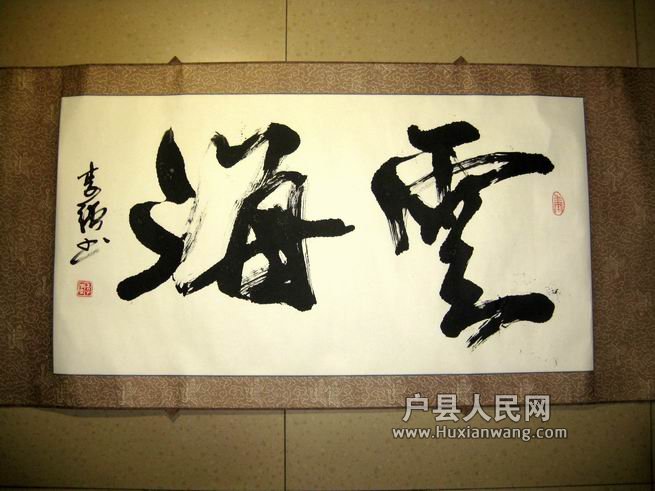 雲海
户县人民网
www.Huxianwang.com